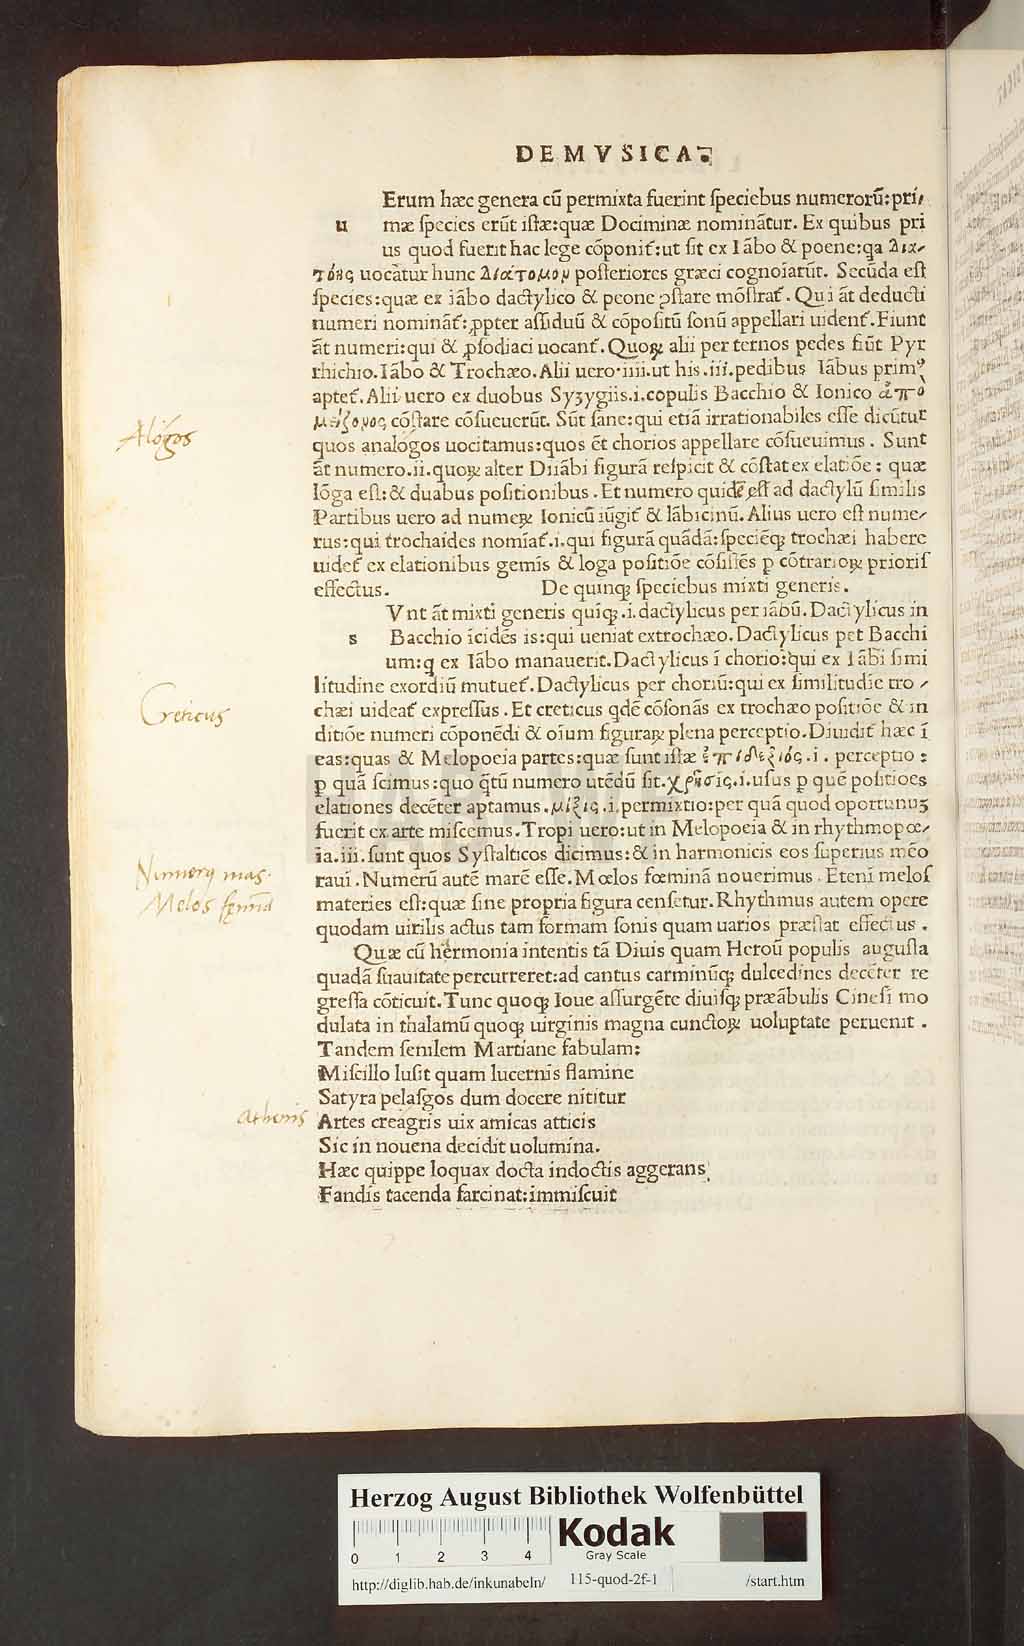 DEMVSICA.
Erum hæc genera cū permixta fuerint ſpeciebus numerorū:pri,
u mæ ſpecies erūt iſtæ:quæ Dociminæ nominātur. Ex quibus pri
us quod fuerit hac lege cōponit̃:ut ſit ex Iābo & poene:qa Δια-
τόης uocātur hunc Διάτομον poſteriores græci cognoīarūt. Secūda eſt
ſpecies:quæ ex iābo dactylico & peone ꝓſtare mōſtrat̃. Qui āt deducti
numeri nominãt̃:ꝓpter aſſiduū & cōpoſitū ſonū appellari uident̃. Fiunt
āt numeri:qui & ꝓſodiaci uocant̃. Quoꝝ alii per ternos pedes fiūt Pyr
rhichio. Iābo & Trochæo. Alii uero.iiii.ut his.iii.pedibus Iābus primꝰ
aptet̃. Alii uero ex duobus Syzygiis.i.copulis Bacchio & Ionico ἀπο
μείζονος cōſtare cōſueuerūt. Sūt ſane:qui etiā irrationabiles eſſe dicūtur
Alógos
quos analógos uocitamus:quos ēt chorios appellare cōſueuimus. Sunt
āt numero.ii.quoꝝ alter Diiābi figurā reſpicit & cōſtat ex elatiōe: quæ
lōga eſt:& duabus poſitionibus. Et numero quidē eſt ad dactylū ſimilis
Partibus uero ad numeꝝ Ionicū iūgit̃ & Iābicinū. Alius uero eſt nume-
rus:qui trochaides nomīat̃.i.qui figurā quādā:ſpeciēqꝫ trochæi habere
uidet̃ ex elationibus gemīs & loga poſitiōe cōſiſtēs p cōtrarioꝝ prioriſ
effectus. De quinqꝫ ſpeciebus mixti generis.
Vnt āt mixti generis quiqꝫ.i.dactylicus per iābū. Dactylicus in
s Bacchio īcidēs is:qui ueniat extrochæo. Dactylicus pet Bacchi
um:q ex Iābo manauerit. Dactylicus ī chorio:qui ex Iābi ſimi
litudine exordiū mutuet̃. Dactylicus per choriū:qui ex ſimilitudīe tro-
Creticus
chæi uideat̃ expreſſus. Et creticus qdē cōſonās ex trochæo poſitiōe & in
ditiōe numeri cōponēdi & oīum figuraꝝ plena perceptio. Diuidit̃ hæc ī
eas:quas & Melopoeia partes:quæ ſunt iſtæ ἐπιδεξιός.i. perceptio:
ꝑ quā ſcimus:quo q̄tū numero utēdū ſit. χρῆσις.i.uſus ꝑ quē poſitioēs
elationes decēter aptamus. μίξις.i.permixtio:per quā quod oportunuꝫ
fuerit ex arte miſcemus. Tropi uero:ut in Melopoeia & in rhythmopœ-
ia.iii.ſunt quos Syſtalticos dicimus:& in harmonicis eos ſuperius mēo
Numerꝰ mas.
raui. Numerū autē marē eſſe. Mœlos fœminā nouerimus. Etenī meloſ
Melos fęmīa
materies eſt:quæ ſine propria figura cenſetur. Rhythmus autem opere
quodam uirilis actus tam formam ſonis quam uarios præſtat effectus.
Quæ cū hermonia intentis tā Diuis quam Heroū populis auguſta
quadā ſuauitate percurreret:ad cantus carminūqꝫ dulcedines decēter re
greſſa cōticuit. Tunc quoqꝫ Ioue aſſurgēte diuiſqꝫ præābulis Cineſi mo
dulata in thalamū quoqꝫ uirginis magna cunctoꝝ uoluptate peruenit.
Tandem ſenilem Martiane fabulam:
Miſcillo luſit quam lucernis flamine
Satyra pelaſgos dum docere nititur
athenis
Artes creagris uix amicas atticis
Sic in nouena decidit uolumina.
Hæc quippe loquax docta indoctis aggerans
Fandis tacenda farcinat:immiſcuit
HAB-WF
Herzog August Bibliothek Wolfenbüttel
0 1 2 3 4
Kodak
Gray Scale
http://diglib.hab.de/inkunabeln/ 115-quod-2f-1 /start.htm